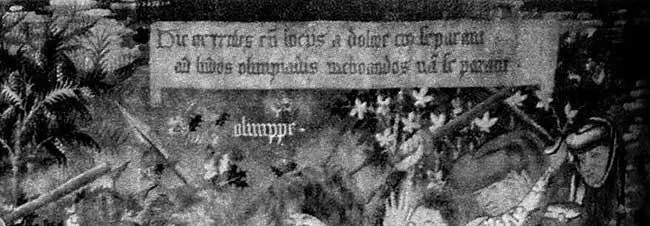 Hic ercules cū socijs a dolore cor separant
ad ludos olimpiadis inchoandos se parant
olimppe